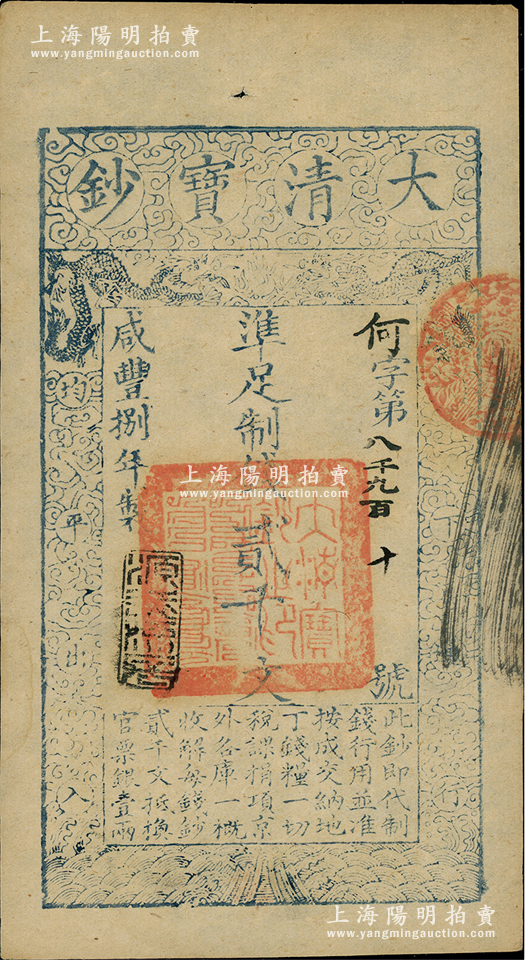 上海陽明拍賣
www.yangmingauction.com
大清寶鈔
何字第八千九百十號
準足制錢貳千文
咸豐捌年製
天下通行
均平出入
此鈔即代制
錢行用並准
按成交納地
丁錢糧一切
稅課捐項京
外各庫一概
收解每錢鈔
貳千文抵換
官票銀壹兩
上海陽明拍賣
www.yangmingauction.com
上海陽明拍賣
www.yangmingauction.com